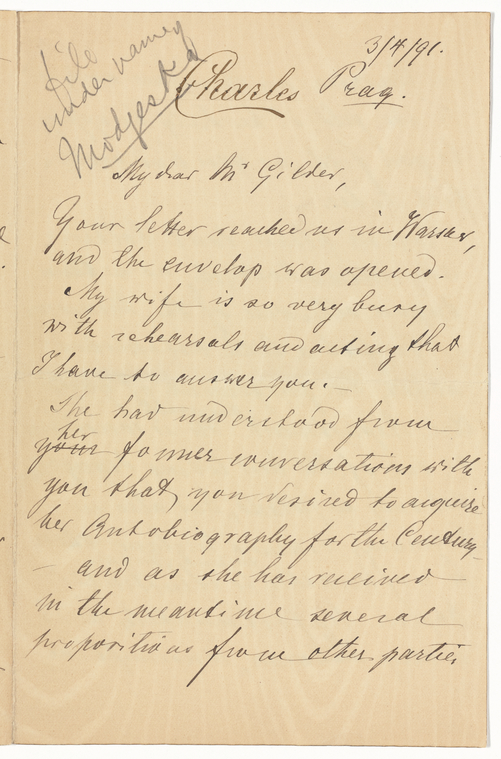 file
under name of
Modjeska
3/4/91.
Charles Prag.
My dear Mr Gilder,
Your letter reached us in Warsaw,
and the envelop was opened.
My wife is so very busy
with rehearsals and acting that
I have to answer you.—
She had understood from
your her former conversations with
you that, you desired to acquire
her Autobiography for the Century
— and as she has received
in the meantime several
propositions from other parties